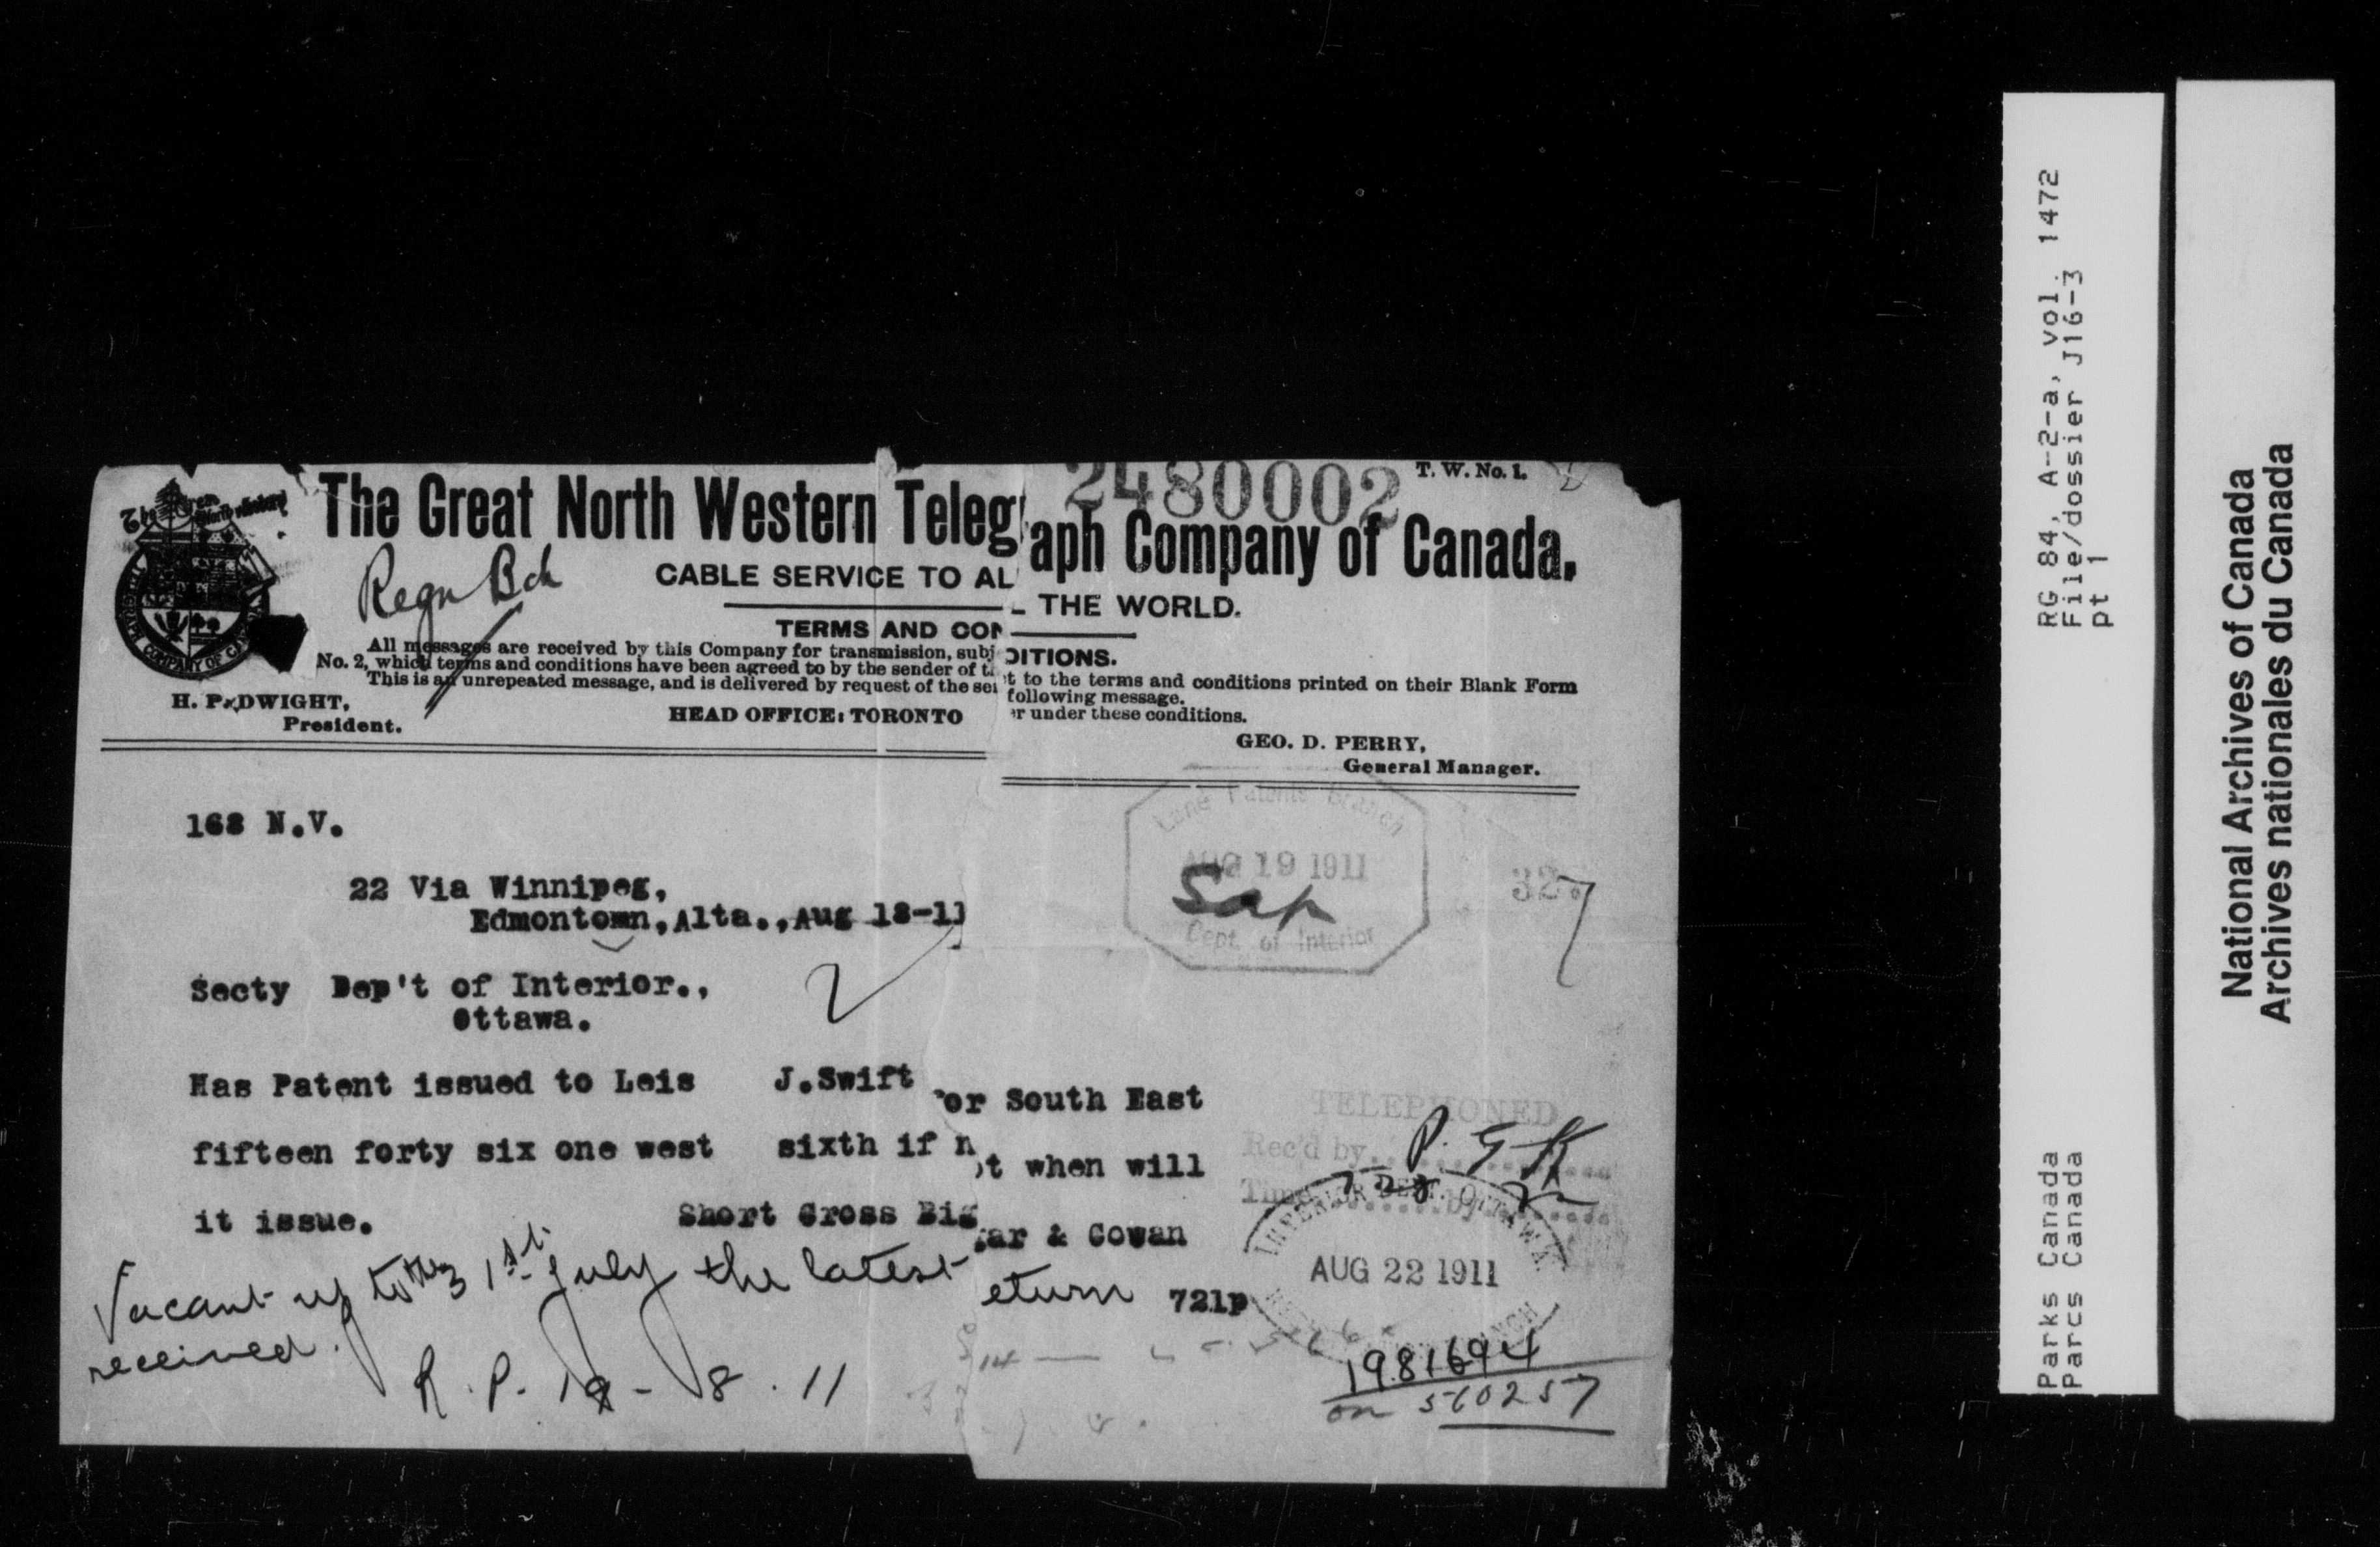 2480002
T. W. No. 1.
The Great North Western Telegraph Company of Canada.
Regn Bch
CABLE SERVICE TO ALL THE WORLD.
TERMS AND CONDITIONS.
All messages are received by this Company for transmission, subject to the terms and conditions printed on their Blank Form
No. 2, which terms and conditions have been agreed to by the sender of the following message.
This is an unrepeated message, and is delivered by request of the sender under these conditions.
H. P. DWIGHT,
President.
HEAD OFFICE: TORONTO
GEO. D. PERRY,
General Manager.
168 N.V.
22 Via Winnipeg,
Edmontown, Alta., Aug 18-11
Land Patents Branch
AUG 19 1911
Dept. of Interior
327
Secty Dep't of Interior.,
Ottawa.
2
Has Patent issued to Leis J.Swift for South East
fifteen forty six one west sixth if not when will
it issue.
Short Cross Biggar & Cowan
721p
TELEPHONED
Rec'd by P. G. K
Time by
INTERIOR DEPT. OTTAWA
AUG 22 1911
Vacant up to the 31st July the latest return
received.
R.P. 19-8.11
1981694
on 560257
RG 84, A-2-a, vol. 1472
File/dossier J16-3
pt 1
Parks Canada
Parcs Canada
National Archives of Canada
Archives nationales du Canada